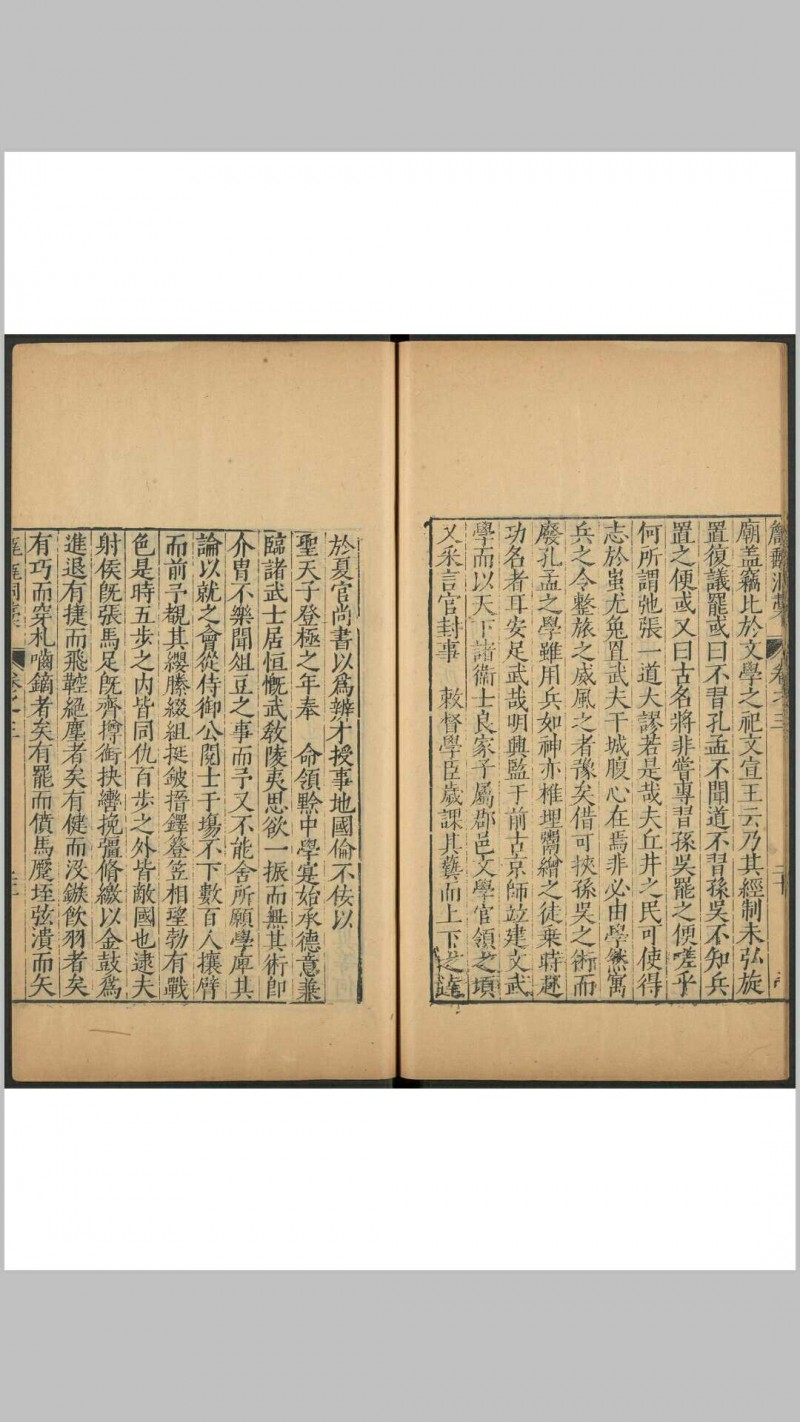 廟蓋竊比於文學之祀文宣王云乃其經制未弘旋
置復議罷或曰不習孔孟不聞道不習孫吳不知兵
置之便或又曰古名將非嘗專習孫吳罷之便嗟乎
何所謂弛張一道大謬若是哉夫丘井之民可使得
志於蚩尤兔罝武夫干城腹心在焉非必由學然寓
兵之令整旅之威風之者豫矣借可挾孫吳之術而
廢孔孟之學雖用兵如神亦椎埋鬻繒之徒乗時趍
功名者耳安足武哉明興監于前古京師竝建文武
學而以天下諸衞士良家子屬郡邑文學官領之頃
又采言官封事 敕督學臣歲課其藝而上下之達
於夏官尚書以爲辨才授事地國倫不佞以
聖天子登極之年奉 命領黔中學寔始承德意兼
臨諸武士居恒慨武敎陵夷思欲一振而無其術卽
介胄不樂聞俎豆之事而予又不能舍所願學庫其
論以就之會從侍御公閱士于塲不下數百人攘臂
而前予覩其纓縢綴組挺鈹搢鐸簦笠相望勃有戰
色是時五步之内皆同仇百步之外皆敵國也逮夫
射侯旣張馬足旣齊撙銜抉轡挽彊脩繳以金鼓爲
進退有捷而飛鞚絕塵者矣有健而沒鏃飲羽者矣
有巧而穿札嚙鏑者矣有罷而僨馬魘垤弦潰而矢
卷之三